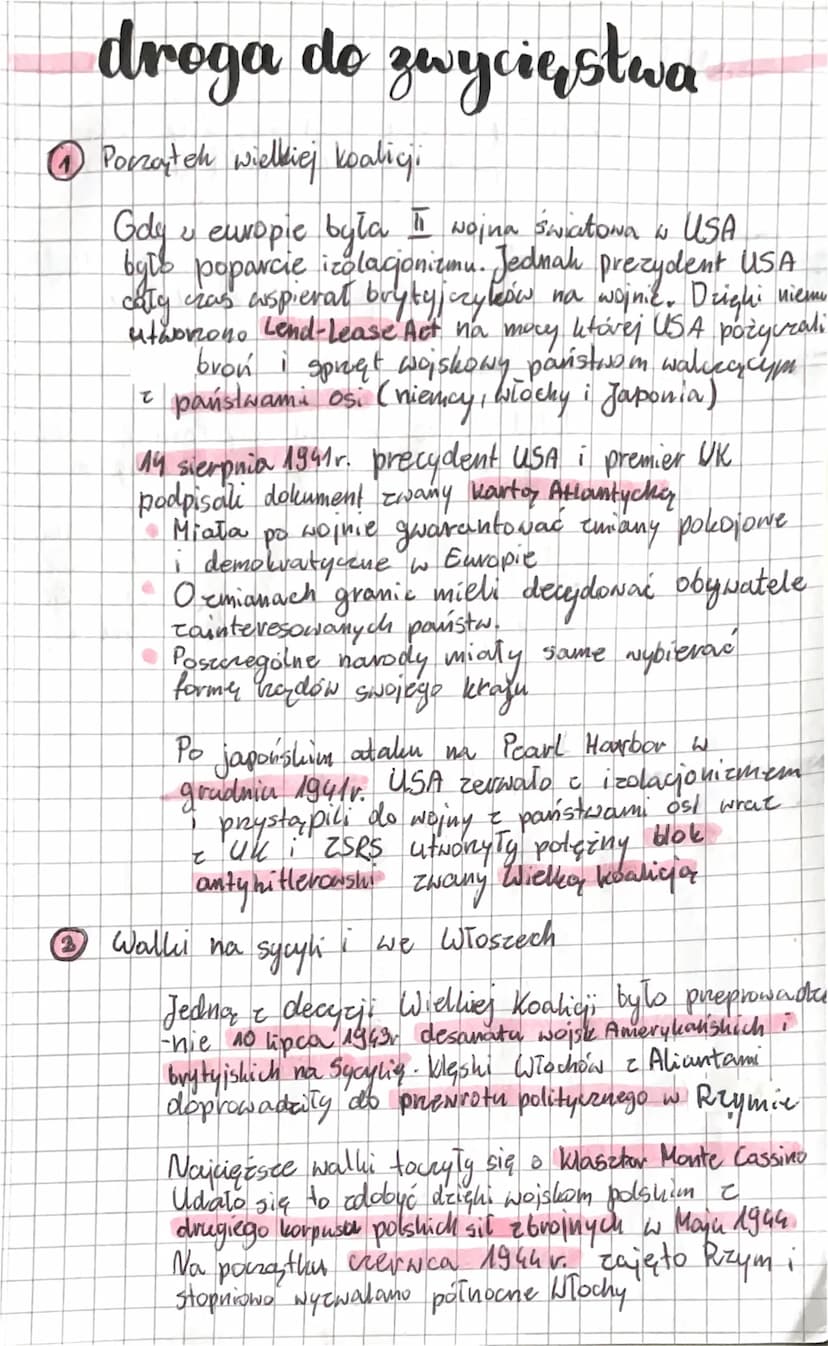 droga do zwycięstwa
1 Początek wielkiej koalicji
Gdy w europie była II wojna światowa w USA
było poparcie izolacjonizmu. Jednak prezydent USA
cały czas wspierał brytyjczyków na wojnie. Dzięki niemu
utworzono Lend-Lease Act na mocy której USA pożyczali
broń i sprzęt wojskowy państwom walczącym
z państwami osi (niemcy, włochy i Japonia)
14 sierpnia 1941r. prezydent USA i premier UK
podpisali dokument zwany kartą Atlantycką
• Miała po wojnie gwarantować zmiany pokojowe
i demokratyczne w Europie
• O zmianach granic mieli decydować obywatele
zainteresowanych państw.
• Poszczególne narody miały same wybierać
formę rządów swojego kraju
Po japońskim ataku na Pearl Harbor w
grudniu 1941r. USA zerwało z izolacjonizmem
i przystąpili do wojny z państwami osi wraz
z UK i ZSRS utworzyły potężny blok
antyhitlerowski zwany Wielką koalicją
2 Walki na sycyli i we Włoszech
Jedną z decyzji Wielkiej Koalicji było przeprowadze
-nie 10 lipca 1943r desantu wojsk Amerykańskich i
brytyjskich na Sycylię. Klęski Włochów z Aliantami
doprowadziły do przewrotu politycznego w Rzymie
Najcięższe walki toczyły się o klasztor Monte Cassino
Udało się to zdobyć dzięki wojskom polskim z
drugiego korpusu polskich sił zbrojnych w Maju 1944
Na początku czerwca 1944r. zajęto Rzym i
stopniowo wyzwalano północne Włochy